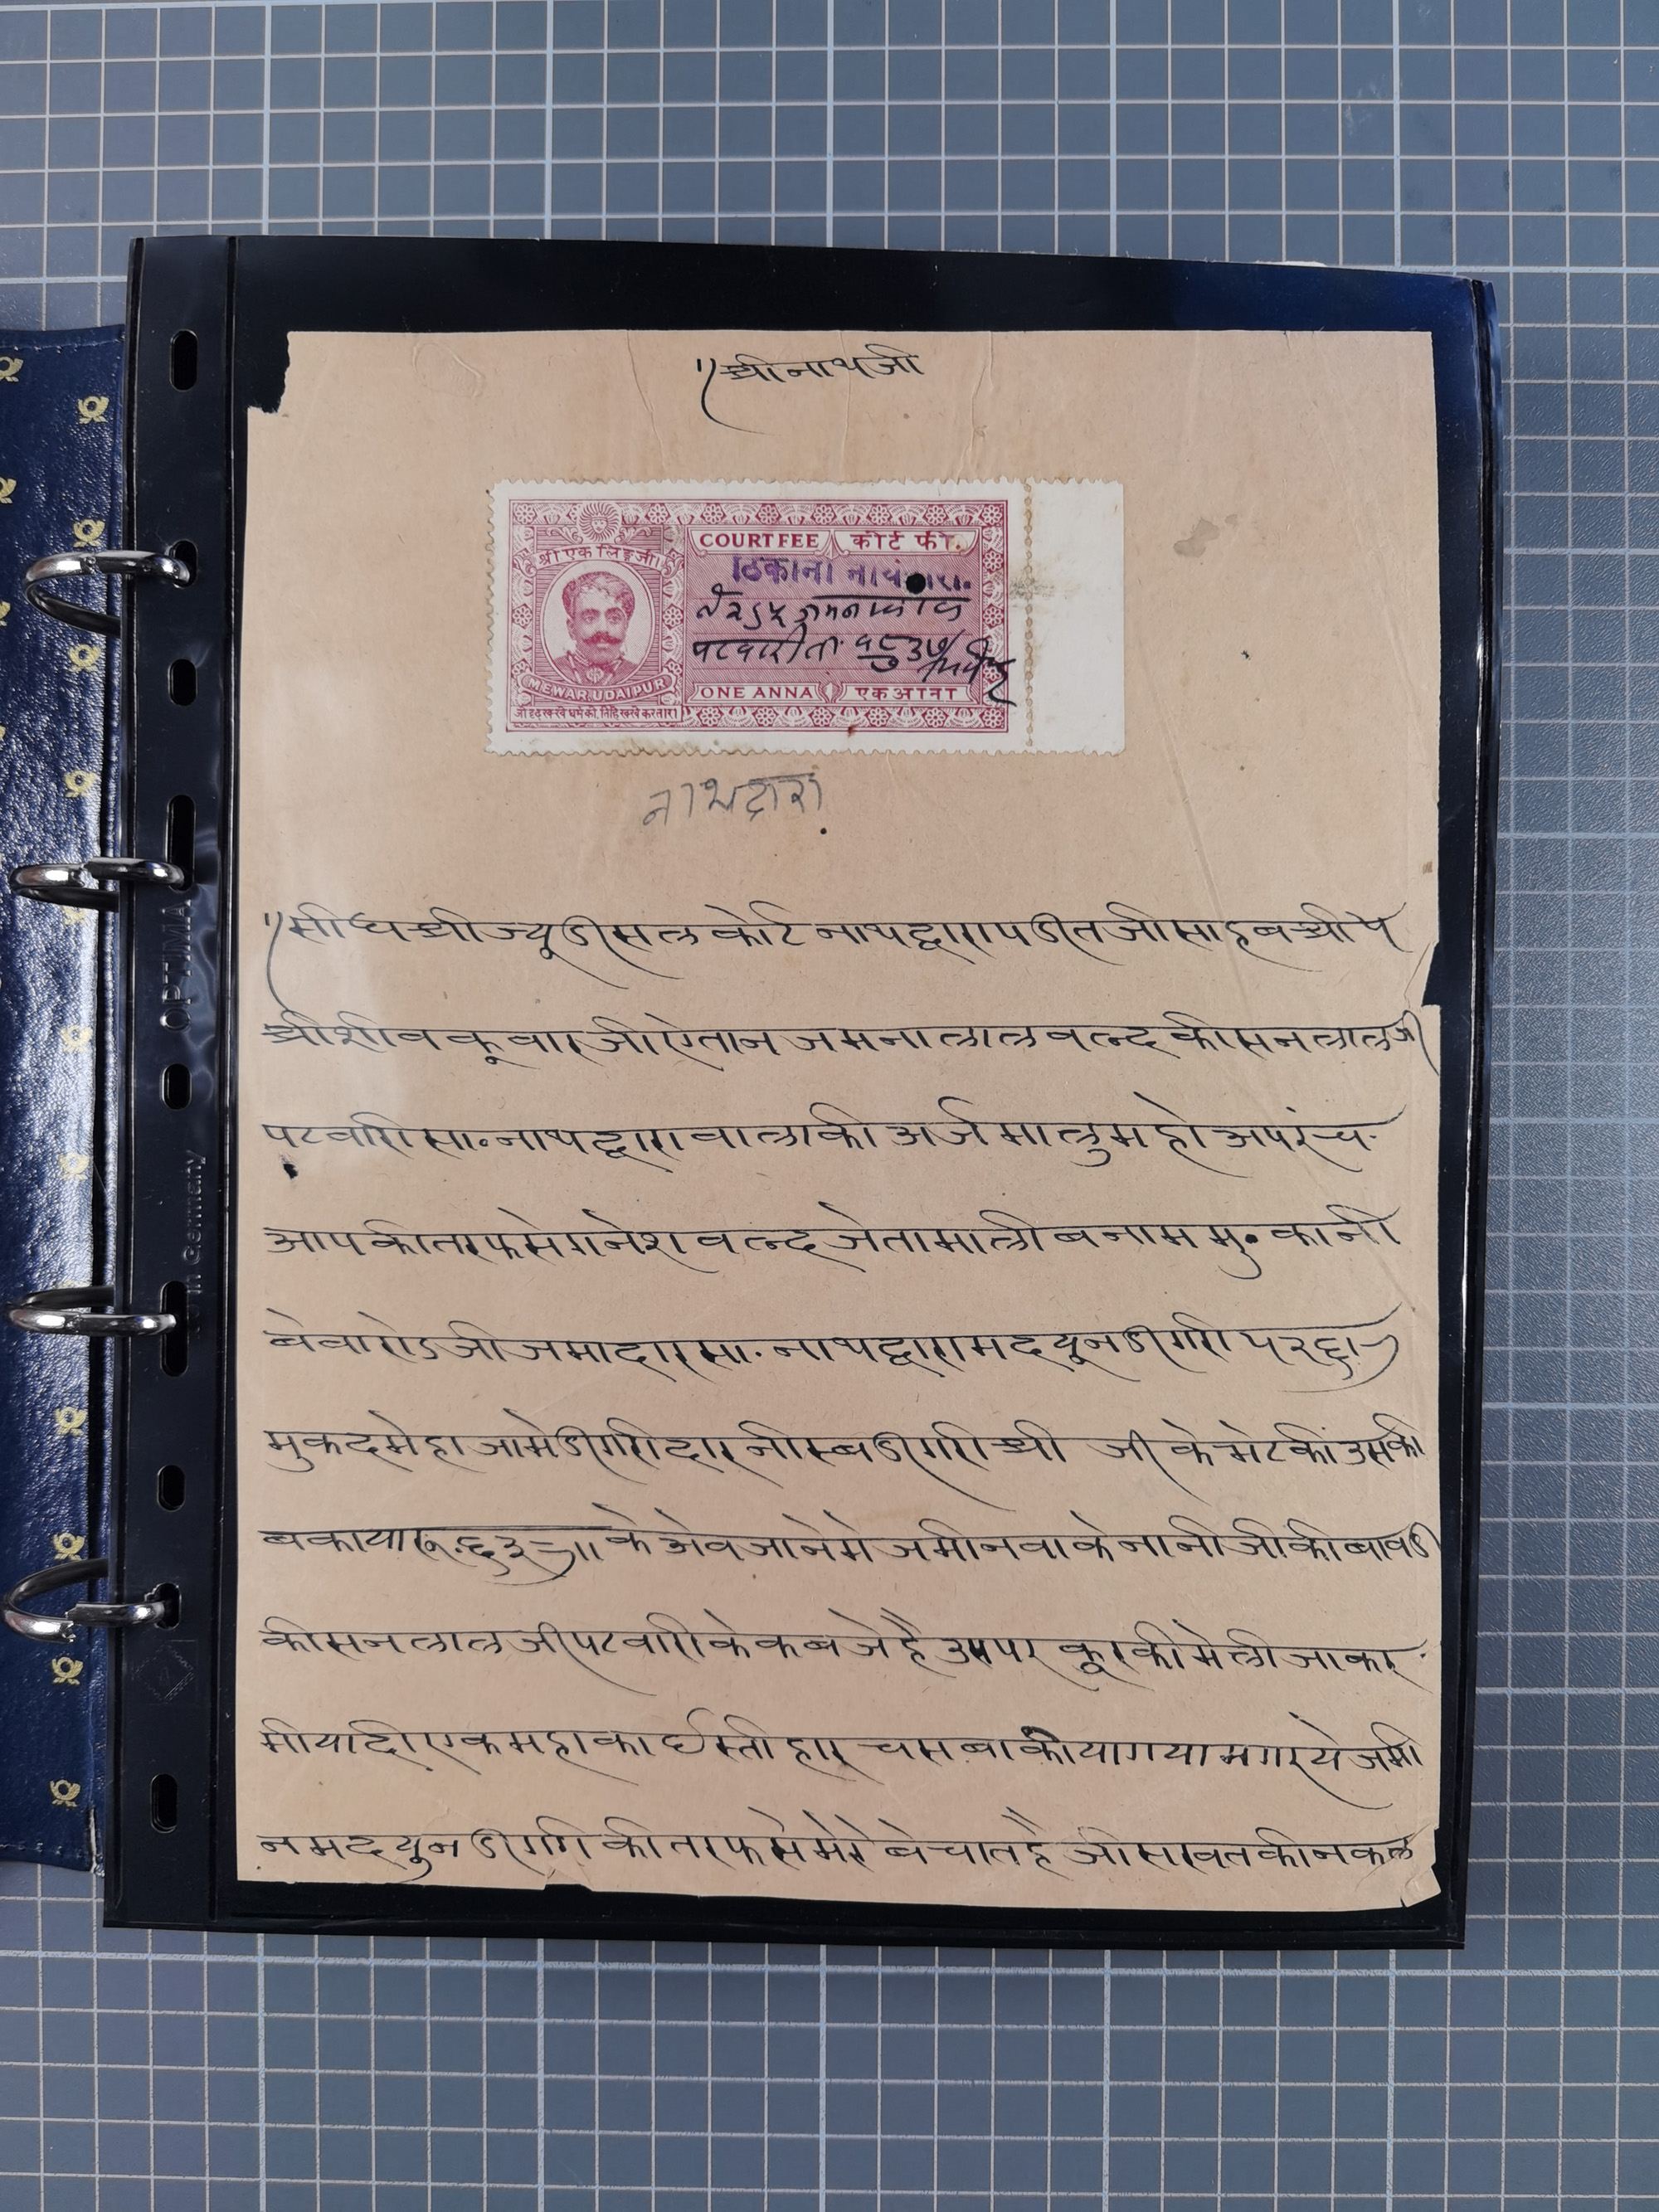 श्रीनाथजी
श्री एकलिङ्गजी
COURT FEE कोर्ट फी.
ठिकाना नाथद्वारा.
पटवारी ता. १९ ७ ३७
MEWAR, UDAIPUR
ONE ANNA एक आना
जो दृढ रख्खे धर्म को, तिहि रख्खे करतार।
नाथद्वारा
सीधश्री ज्यूडीसल कोर्ट नाथद्वारा पडीतजी साहब श्री पे
श्री शीवकूवारजी ऐतान जमनालाल वल्द कीसनलालजी
पटवारी सा॰ नाथद्वारा वाला की अर्ज मालुम हो अपरंच
आपकी तरफ से गनेश वल्द जेता माली बनाम मु॰ कानी
बेवा रोडजी जमादार सा. नाथद्वारा मदयून डीगरी
मुकदमे हाजा मे डीगरीदार नीस्ब डीगरी श्री जी के भेट की उसकी
बकाया रू. के अेवजाने मे जमीन वाके नानीजी की बावडी
कीसनलालजी पटवारी के कबजे है उसपर कूरकी मेली जाकर
मीयादी एक महा का ईस्तीहार चसबा कीया गया मगर ये जमी
न मदयुन डीगरी की तरफ से मेरे बेचात है जीस खत की नकल
OPTIMA
in Germany